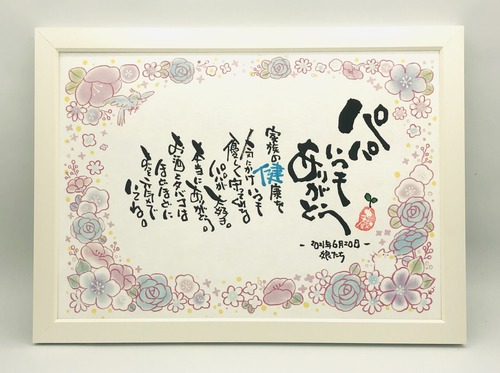 パパ
いつも
ありがとう
家族の健康を
気にかけいつも
優しく守ってくれる
パパが大好き。
本当にありがとう。
お酒とタバコは
ほどほどに
元気で
いてね。
- 2021年6月20日 -
娘たち